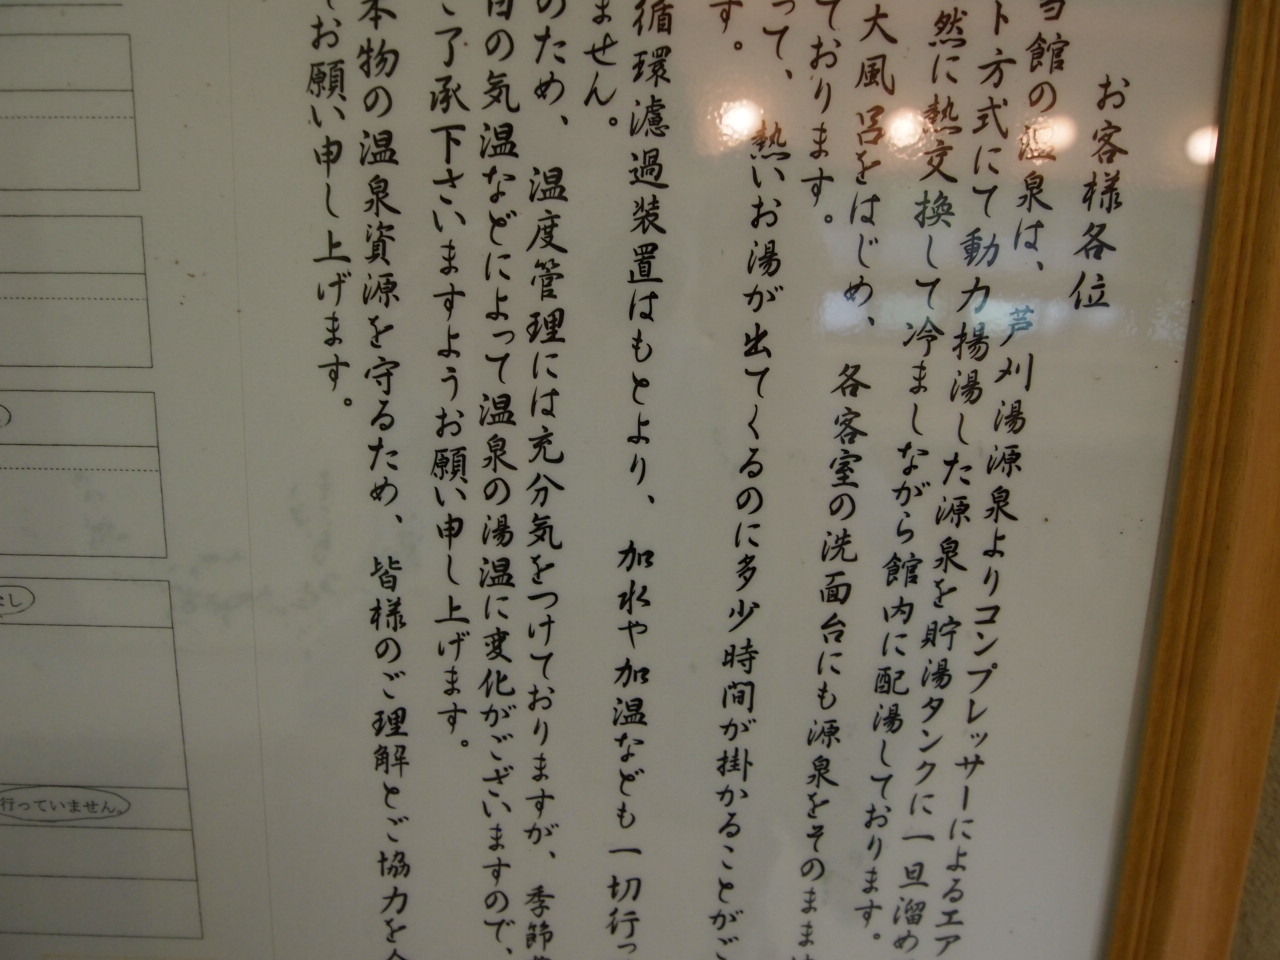 お客様各位
館の温泉は、芦刈湯源泉よりコンプレッサーによるエア
ト方式にて動力揚湯した源泉を貯湯タンクに一旦溜め
然に熱交換して冷ましながら館内に配湯しております。
大風呂をはじめ、各客室の洗面台にも源泉をそのまま
ております。
って、熱いお湯が出てくるのに多少時間が掛かることがご
す。
循環濾過装置はもとより、加水や加温なども一切行っ
ません。
のため、温度管理には充分気をつけておりますが、季節
日の気温などによって温泉の湯温に変化がございますので、
ご了承下さいますようお願い申し上げます。
本物の温泉資源を守るため、皆様のご理解とご協力を
お願い申し上げます。
なし
行っていません。